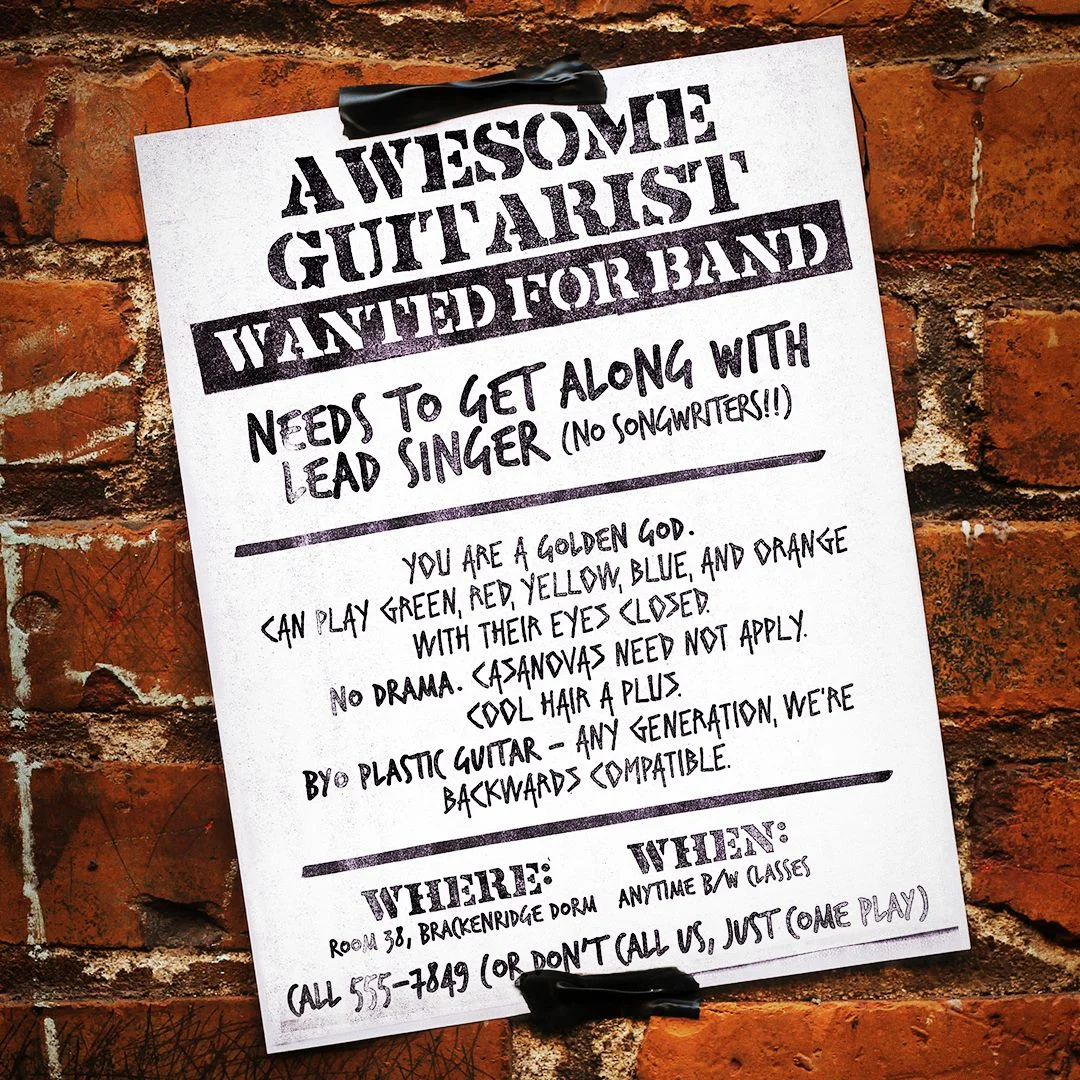 AWESOME
GUITARIST
WANTED FOR BAND
NEEDS TO GET ALONG WITH
LEAD SINGER (NO SONGWRITERS!!)
YOU ARE A GOLDEN GOD.
CAN PLAY GREEN, RED, YELLOW, BLUE, AND ORANGE
WITH THEIR EYES CLOSED.
NO DRAMA. CASANOVAS NEED NOT APPLY.
COOL HAIR A PLUS.
BYO PLASTIC GUITAR – ANY GENERATION, WE'RE
BACKWARDS COMPATIBLE.
WHERE:
ROOM 38, BRACKENRIDGE DORM
WHEN:
ANYTIME B/W CLASSES
CALL 555-7849 (OR DON'T CALL US, JUST COME PLAY)